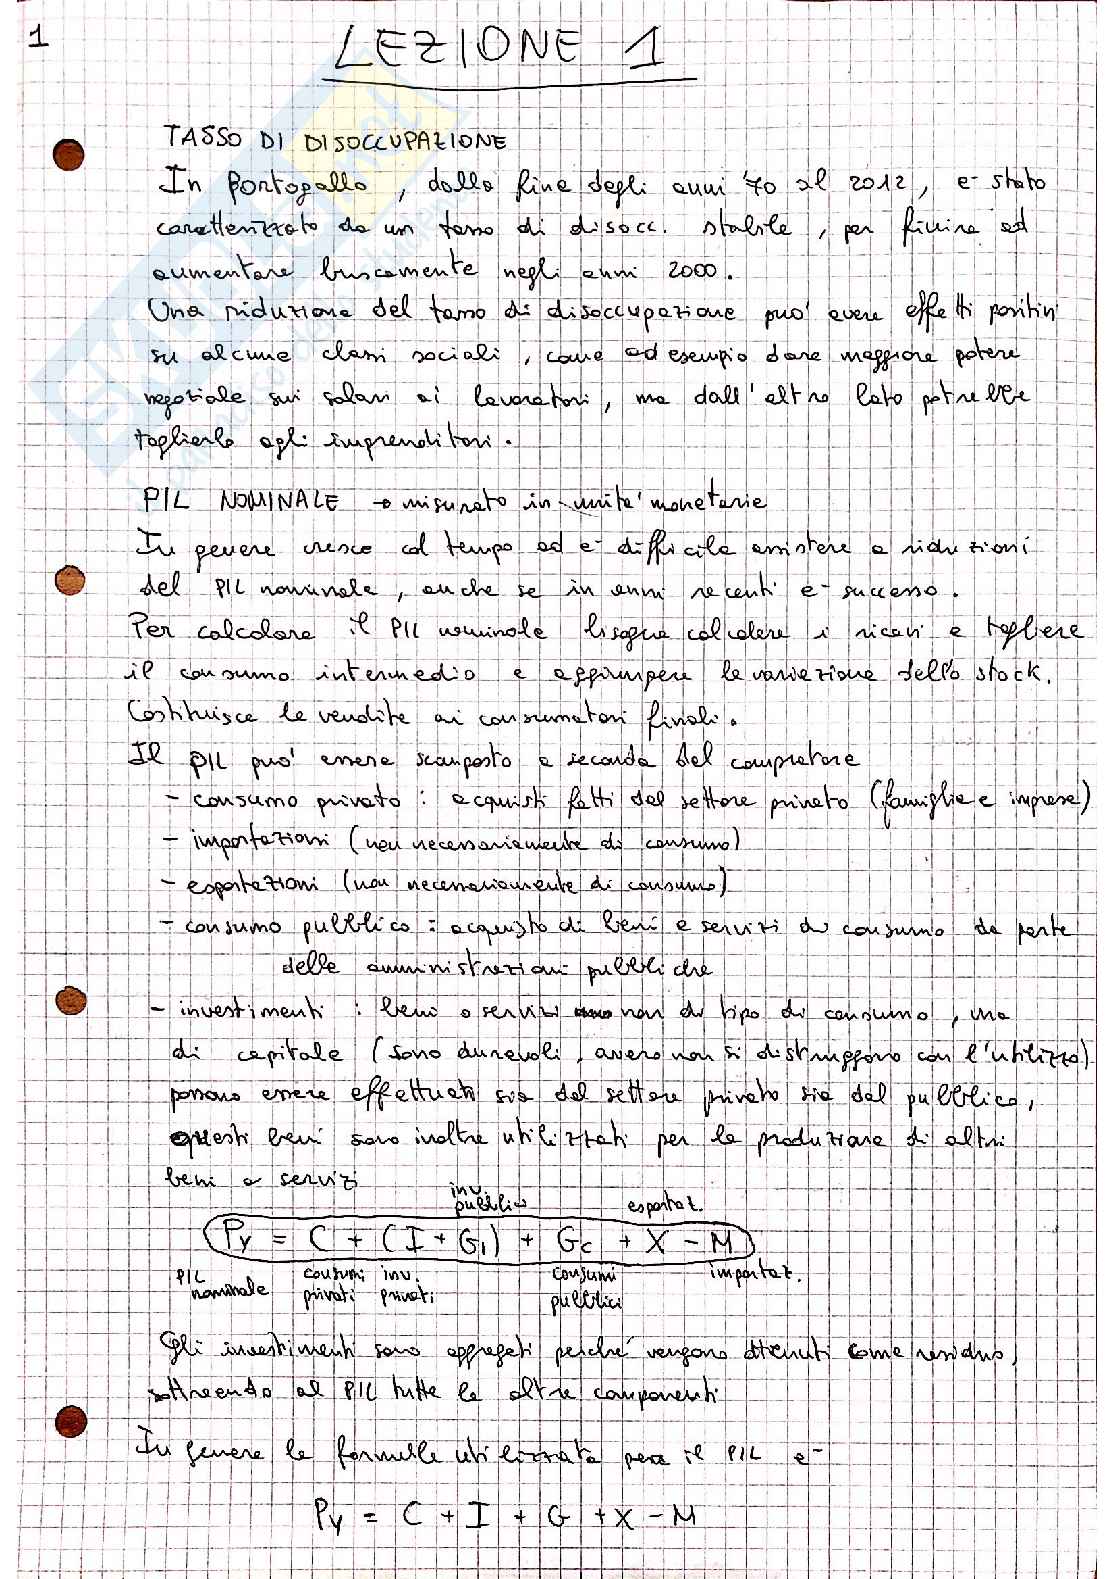 1
LEZIONE 1
TASSO DI DISOCCUPAZIONE
In Portogallo, dalla fine degli anni '70 al 2012, e' stato
caratterizzato da un tasso di disocc. stabile, per finire ad
aumentare bruscamente negli anni 2000.
Una riduzione del tasso di disoccupazione puo' avere effetti positivi
su alcune classi sociali, come ad esempio dare maggiore potere
negoziale sui salari ai lavoratori, ma dall'altro lato potrebbe
toglierlo agli imprenditori.
PIL NOMINALE → misurato in unita' monetarie
In genere cresce col tempo ed e' difficile assistere a riduzioni
del PIL nominale, anche se in anni recenti e' successo.
Per calcolare il PIL nominale bisogna calcolare i ricavi e togliere
il consumo intermedio e aggiungere la variazione dello stock.
Costituisce le vendite ai consumatori finali.
Il PIL puo' essere scomposto a seconda del compratore
- consumo privato : acquisti fatti dal settore privato (famiglie e imprese)
- importazioni (non necessariamente di consumo)
- esportazioni (non necessariamente di consumo)
- consumo pubblico : acquisto di beni e servizi di consumo da parte
delle amministrazioni pubbliche
- investimenti : beni o servizi non di tipo di consumo, ma
di capitale (sono durevoli, ovvero non si distruggono con l'utilizzo)
possono essere effettuati sia dal settore privato sia dal pubblico,
questi beni sono inoltre utilizzati per la produzione di altri
beni o servizi
inv. pubblici esportaz.
Py = C + (I + GI) + Gc + X - M
PIL nominale consumi privati inv. privati consumi pubblici importaz.
Gli investimenti sono aggregati perché vengono ottenuti come residuo,
sottraendo al PIL tutte le altre componenti
In genere la formula utilizzata per il PIL e'
Py = C + I + G + X - M